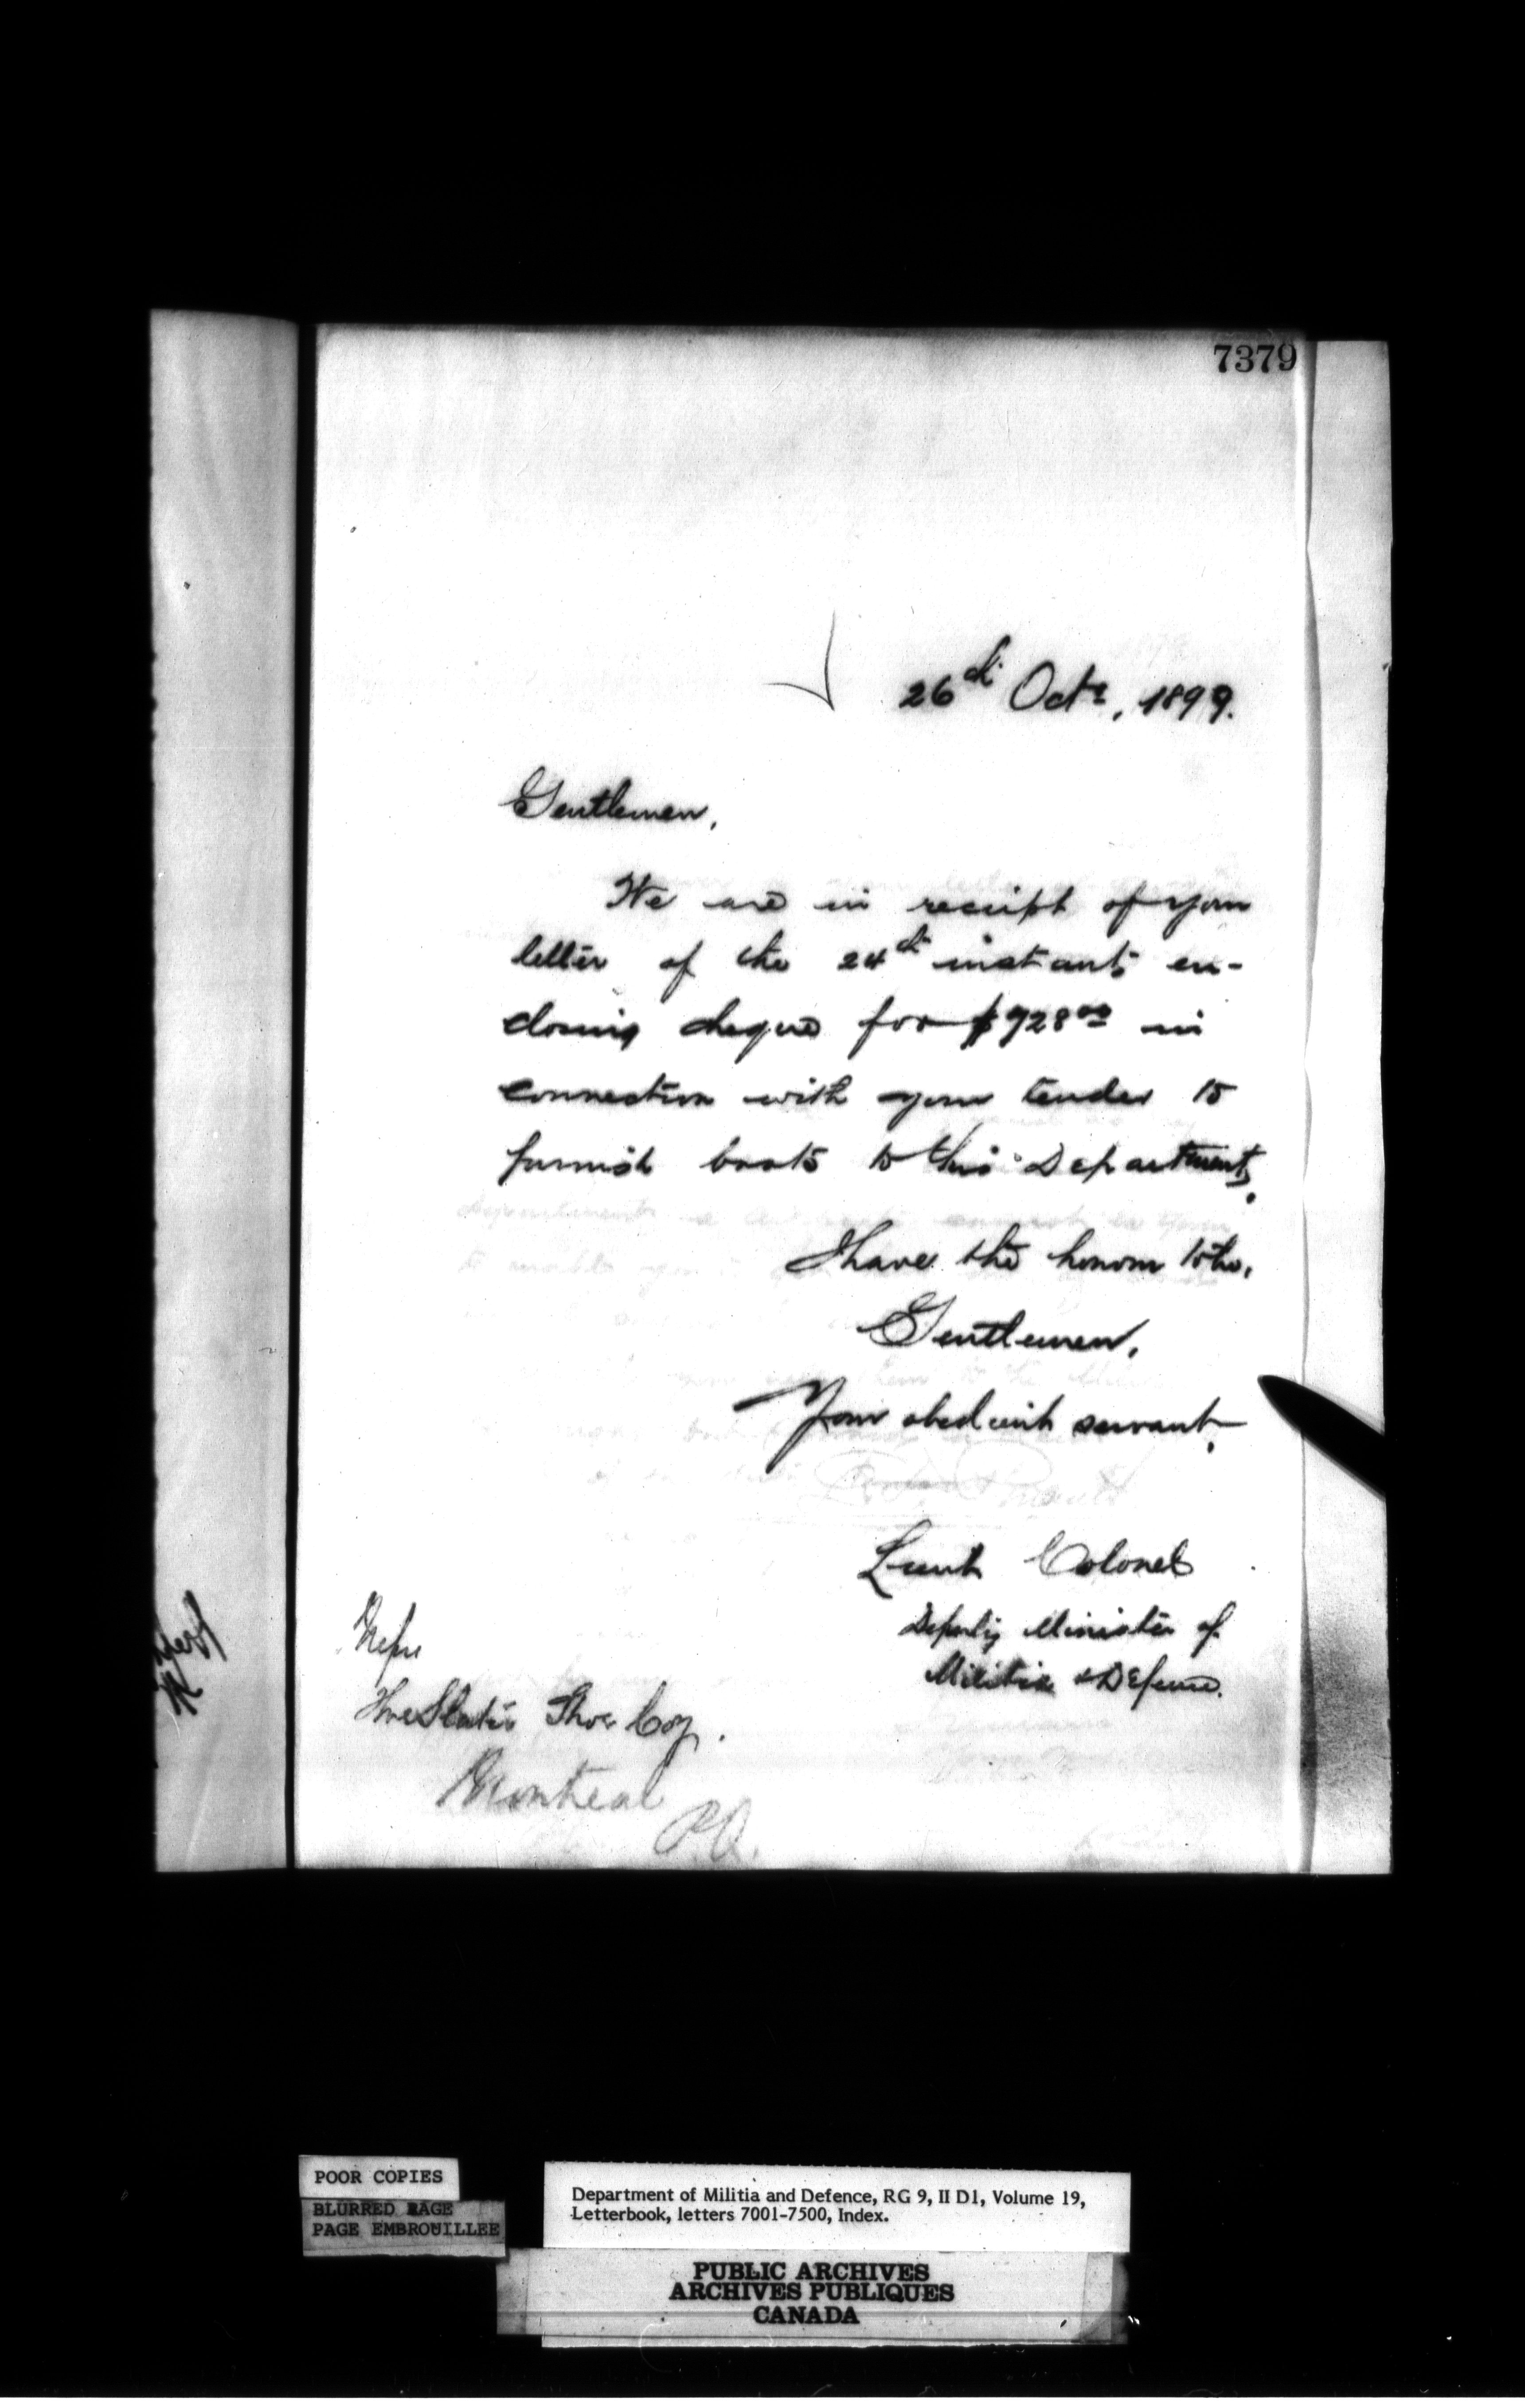 7379
26th Octr, 1899.
Gentlemen,
We are in receipt of your
letter of the 24th instant, en-
closing cheque for $928.00 in
connection with your tender to
furnish boots to this Department.
I have the honour to be,
Gentlemen,
Your obedient servant,
Lieut Colonel
Deputy Minister of
Militia & Defence.
Messrs
The Slater Shoe Coy.
Montreal
P.Q.
POOR COPIES
BLURRED PAGE
PAGE EMBROUILLEE
Department of Militia and Defence, RG 9, II D1, Volume 19,
Letterbook, letters 7001-7500, Index.
PUBLIC ARCHIVES
ARCHIVES PUBLIQUES
CANADA